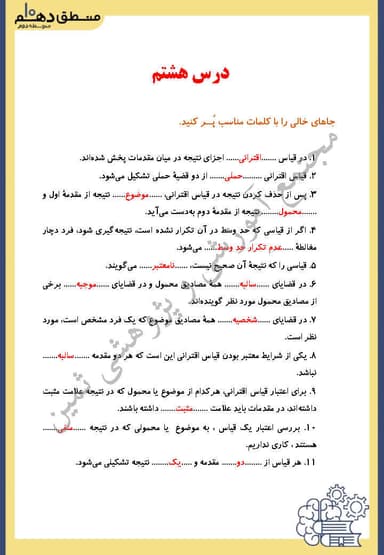 منطق دهم
متوسطه دوم
درس هشتم
جاهای خالی را با کلمات مناسب پُـر کنید.
۱. در قیاس .......اقترانی...... اجزای نتیجه در میان مقدمات پخش شده‌اند.
۲. قیاس اقترانی .........حملی....... از دو قضیۀ حملی تشکیل می‌شود.
۳. پس از حذف کردن نتیجه در قیاس اقترانی، .......موضوع...... نتیجه از مقدمۀ اول و
.......محمول......... نتیجه از مقدمۀ دوم به‌دست می‌آید.
۴. اگر از قیاسی که حد وسط در آن تکرار نشده است، نتیجه‌گیری شود، فرد دچار
مغالطۀ .....عدم تکرار حد وسط...... می‌شود.
۵. قیاسی را که نتیجۀ آن صحیح نیست، ......نامعتبر...... می‌گویند.
۶. در قضایای ......سالبه....... همۀ مصادیق محمول و در قضایای ......موجبه...... برخی
از مصادیق محمول مورد نظر گوینده‌اند.
۷. در قضایای ......شخصیه....... همۀ مصادیق موضوع که یک فرد مشخص است، مورد
نظر است.
۸. یکی از شرایط معتبر بودن قیاس اقترانی این است که هر دو مقدمه .......سالبه.......
نباشد.
۹. برای اعتبار قیاس اقترانی، هرکدام از موضوع یا محمول که در نتیجه علامت مثبت
داشته‌اند، در مقدمات باید علامت .......مثبت....... داشته باشند.
۱۰. بررسی اعتبار یک قیاس ، به موضوع یا محمولی که در نتیجه ......منفی......
هستند ، کاری نداریم.
۱۱. هر قیاس از ........دو...... مقدمه و .....یک....... نتیجه تشکیلی می‌شود.
مجتمع آموزشی و پژوهشی ثمین